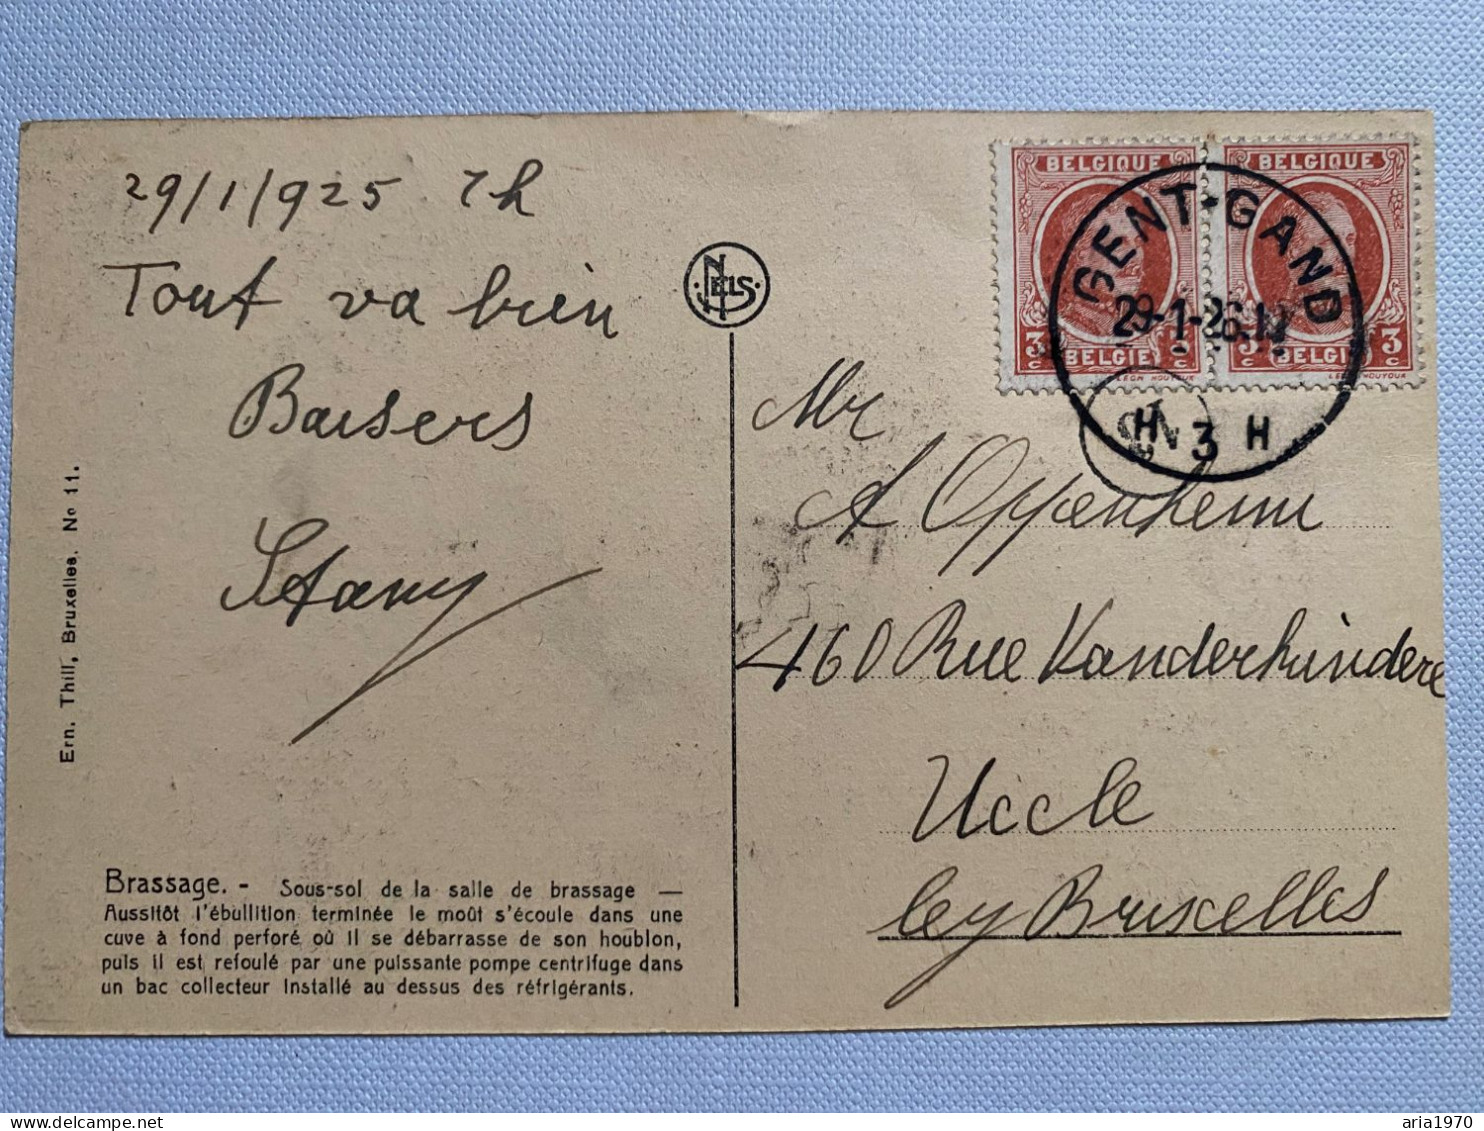 29/1/925 7h
Tout va bien
Baisers
Stany
Ern. Thill, Bruxelles. No 11.
Brassage. - Sous-sol de la salle de brassage —
Aussitôt l'ébullition terminée le moût s'écoule dans une
cuve à fond perforé où il se débarrasse de son houblon,
puis il est refoulé par une puissante pompe centrifuge dans
un bac collecteur installé au dessus des réfrigérants.
NELS
BELGIQUE
3c 3c
BELGIE
LEON HOUYOUX
BELGIQUE
3c 3c
BELGIE
LEON HOUYOUX
GENT-GAND
29-1-26
H 3 H
Mr
A Oppenheim
460 Rue Vanderkindere
Uccle
lez Bruxelles
aria1970